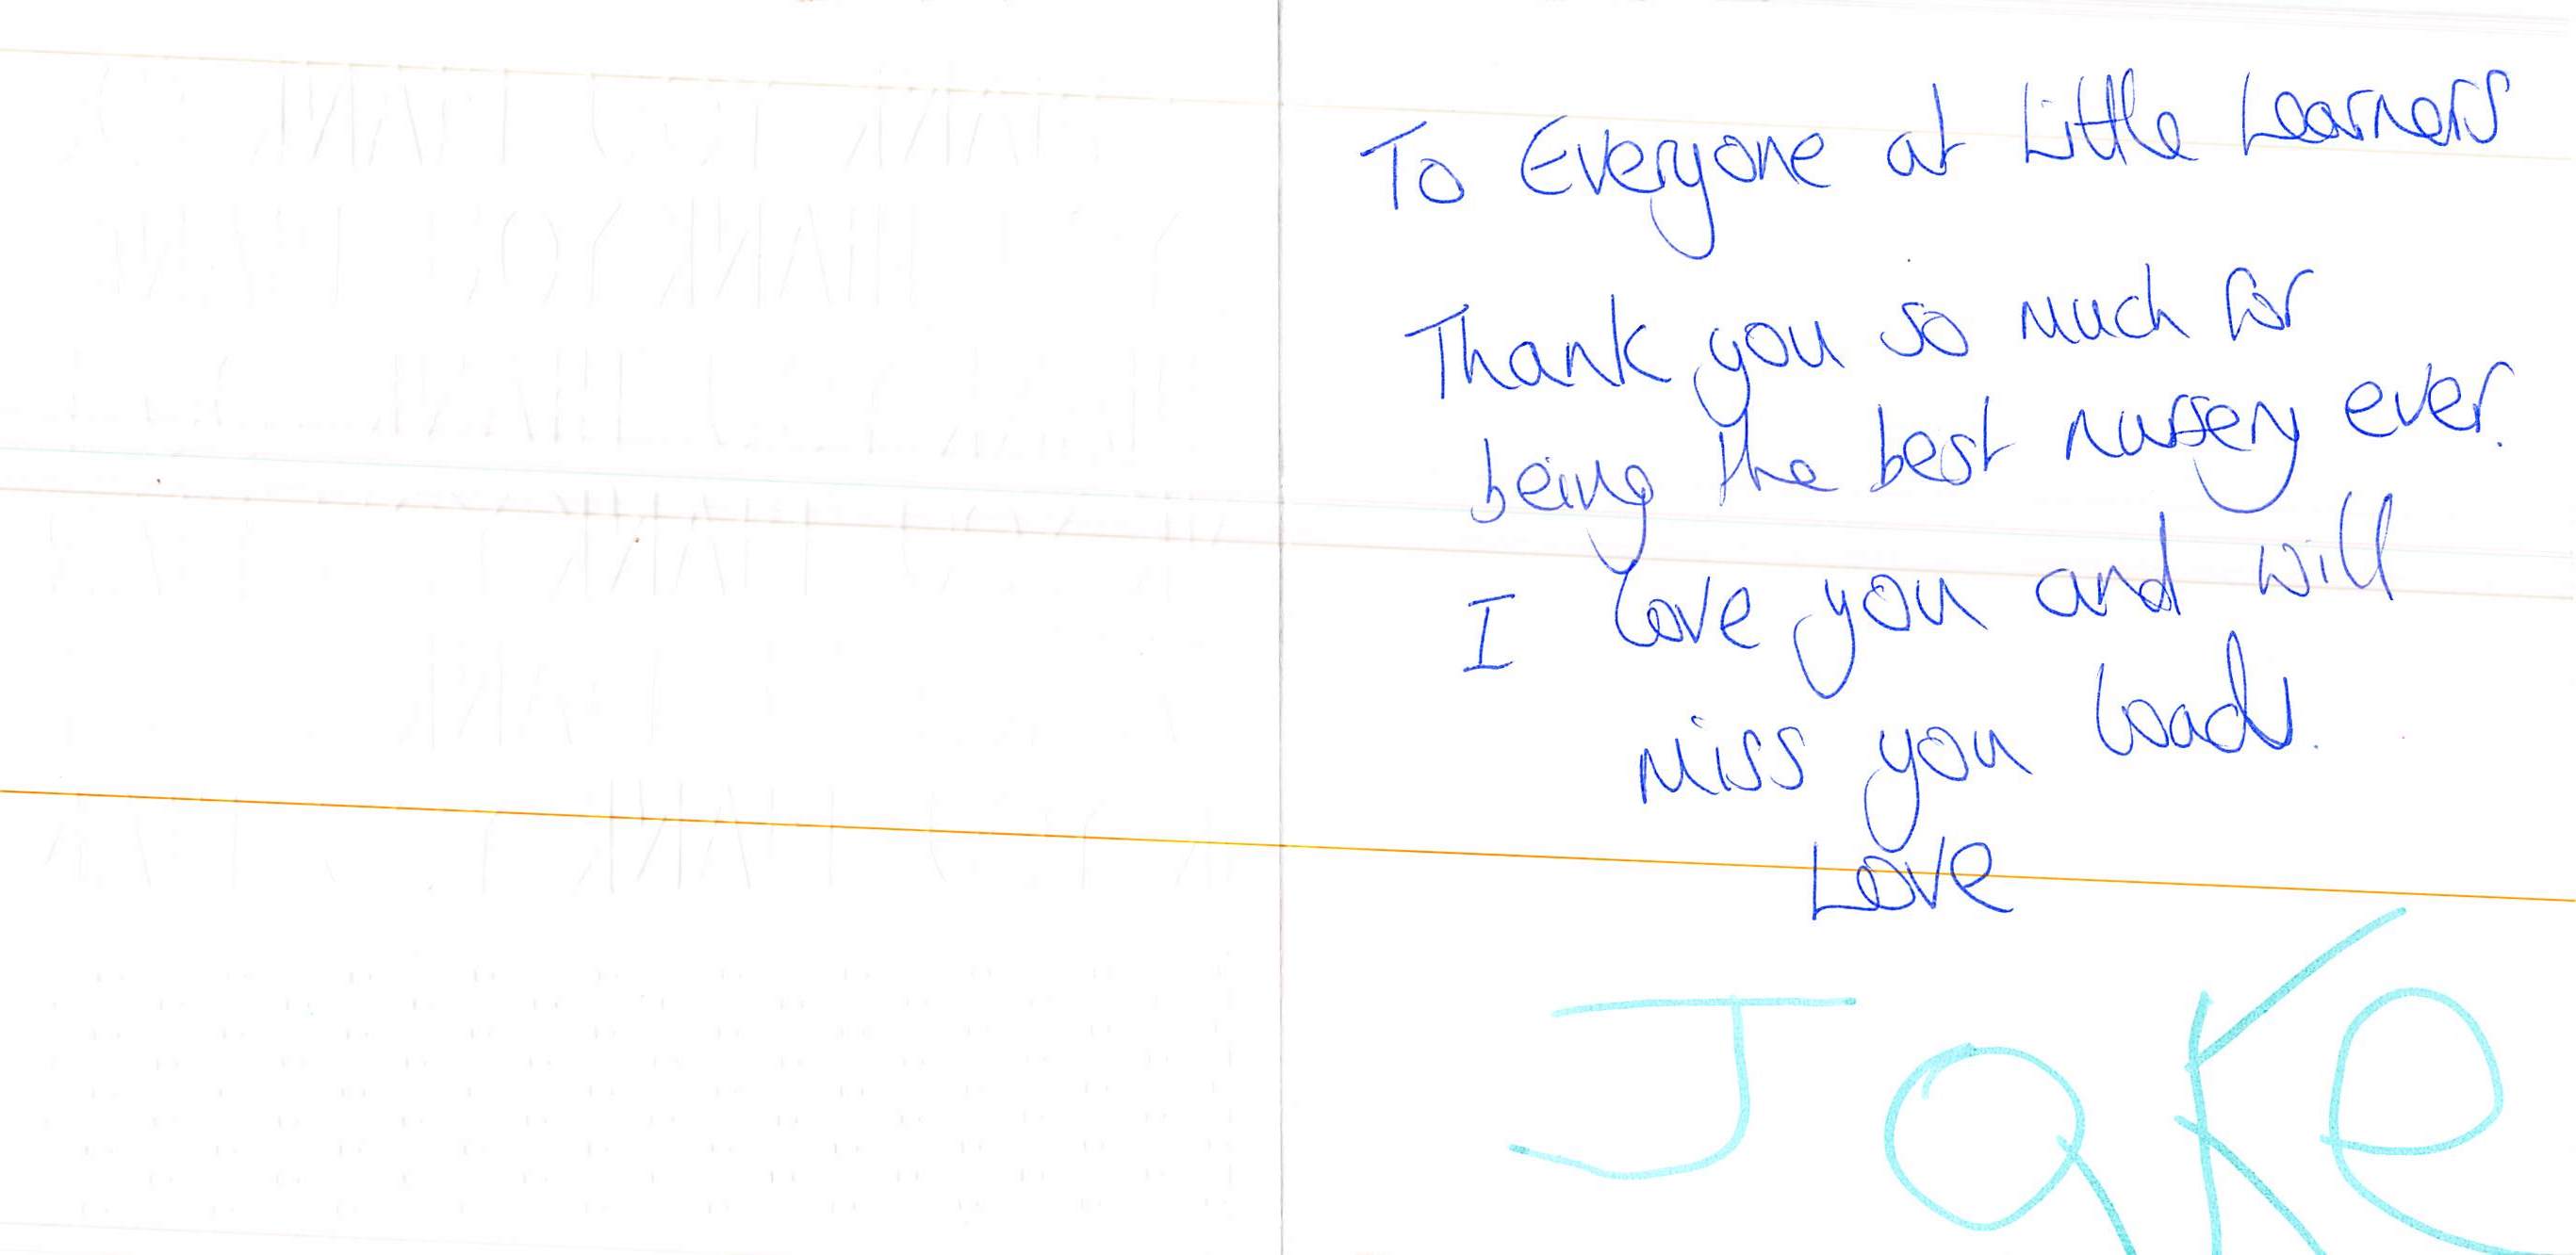 To Everyone at Little Learners
Thank you so much for
being the best nursery ever.
I love you and will
miss you loads.
Love
Jake